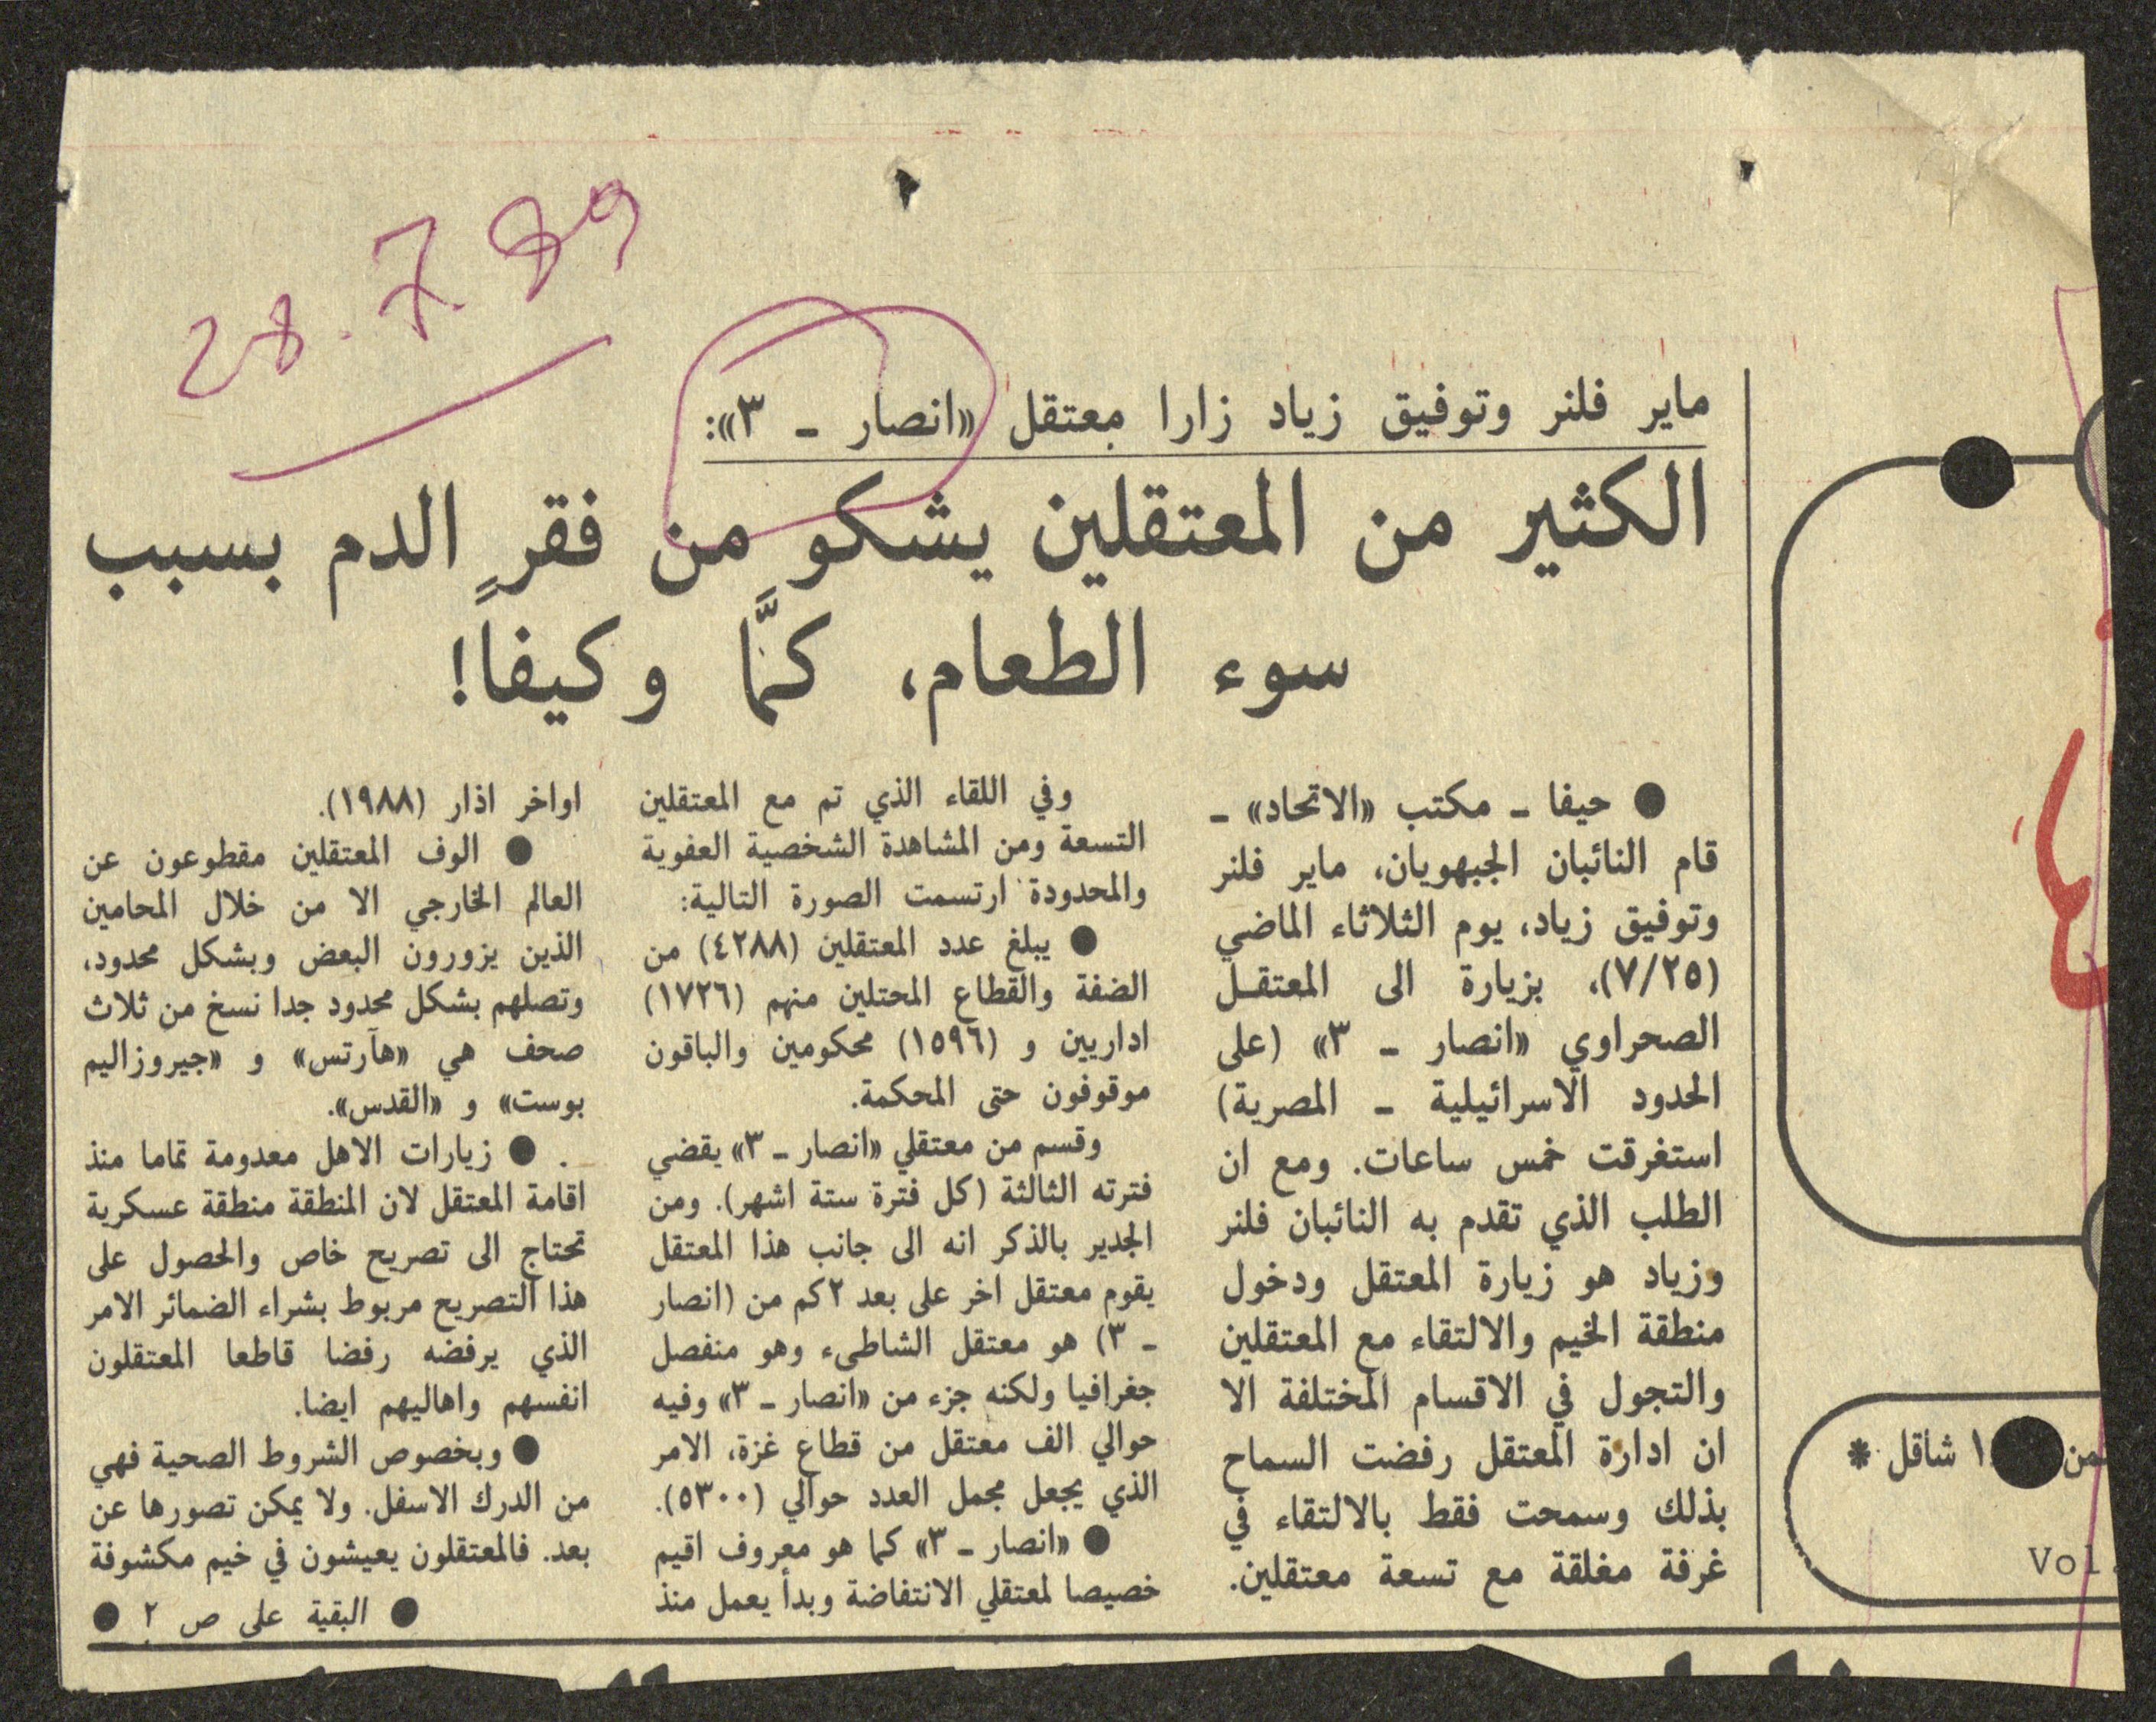 28.7.89
ماير فلنر وتوفيق زياد زارا معتقل «انصار ـ ٣»:
الكثير من المعتقلين يشكو من فقرٍ الدم بسبب
سوء الطعام، كمَّا وكيفاً!
● حيفا ـ مكتب «الاتحاد» ـ
قام النائبان الجبهويان، ماير فلنر
وتوفيق زياد، يوم الثلاثاء الماضي
(٧/٢٥)، بزيارة الى المعتقـل
الصحراوي «انصار ـ ٣» (على
الحدود الاسرائيلية ـ المصرية)
استغرقت خمس ساعات. ومع ان
الطلب الذي تقدم به النائبان فلنر
وزياد هو زيارة المعتقل ودخول
منطقة الخيم والالتقاء مع المعتقلين
والتجول في الاقسام المختلفة الا
ان ادارة المعتقل رفضت السماح
بذلك وسمحت فقط بالالتقاء في
غرفة مغلقة مع تسعة معتقلين.
وفي اللقاء الذي تم مع المعتقلين
التسعة ومن المشاهدة الشخصية العفوية
والمحدودة ارتسمت الصورة التالية:
● يبلغ عدد المعتقلين (٤٢٨٨) من
الضفة والقطاع المحتلين منهم (١٧٢٦)
اداريين و (١٥٩٦) محكومين والباقون
موقوفون حتى المحكمة.
وقسم من معتقلي «انصار ـ ٣» يقضي
فترته الثالثة (كل فترة ستة اشهر). ومن
الجدير بالذكر انه الى جانب هذا المعتقل
يقوم معتقل اخر على بعد ٢ كم من (انصار
ـ ٣) هو معتقل الشاطىء وهو منفصل
جغرافيا ولكنه جزء من «انصار ـ ٣» وفيه
حوالي الف معتقل من قطاع غزة، الامر
الذي يجعل مجمل العدد حوالي (٥٣٠٠).
● «انصار ـ ٣» كما هو معروف اقيم
خصيصا لمعتقلي الانتفاضة وبدأ يعمل منذ
اواخر اذار (١٩٨٨).
● الوف المعتقلين مقطوعون عن
العالم الخارجي الا من خلال المحامين
الذين يزورون البعض وبشكل محدود،
وتصلهم بشكل محدود جدا نسخ من ثلاث
صحف هي «هآرتس» و «جيروزاليم
بوست» و «القدس».
● زيارات الاهل معدومة تماما منذ
اقامة المعتقل لان المنطقة منطقة عسكرية
تحتاج الى تصريح خاص والحصول على
هذا التصريح مربوط بشراء الضمائر الامر
الذي يرفضه رفضا قاطعا المعتقلون
انفسهم واهاليهم ايضا.
● وبخصوص الشروط الصحية فهي
من الدرك الاسفل. ولا يمكن تصورها عن
بعد. فالمعتقلون يعيشون في خيم مكشوفة
● البقية على ص ٢ ●
شاقل *
Vol.